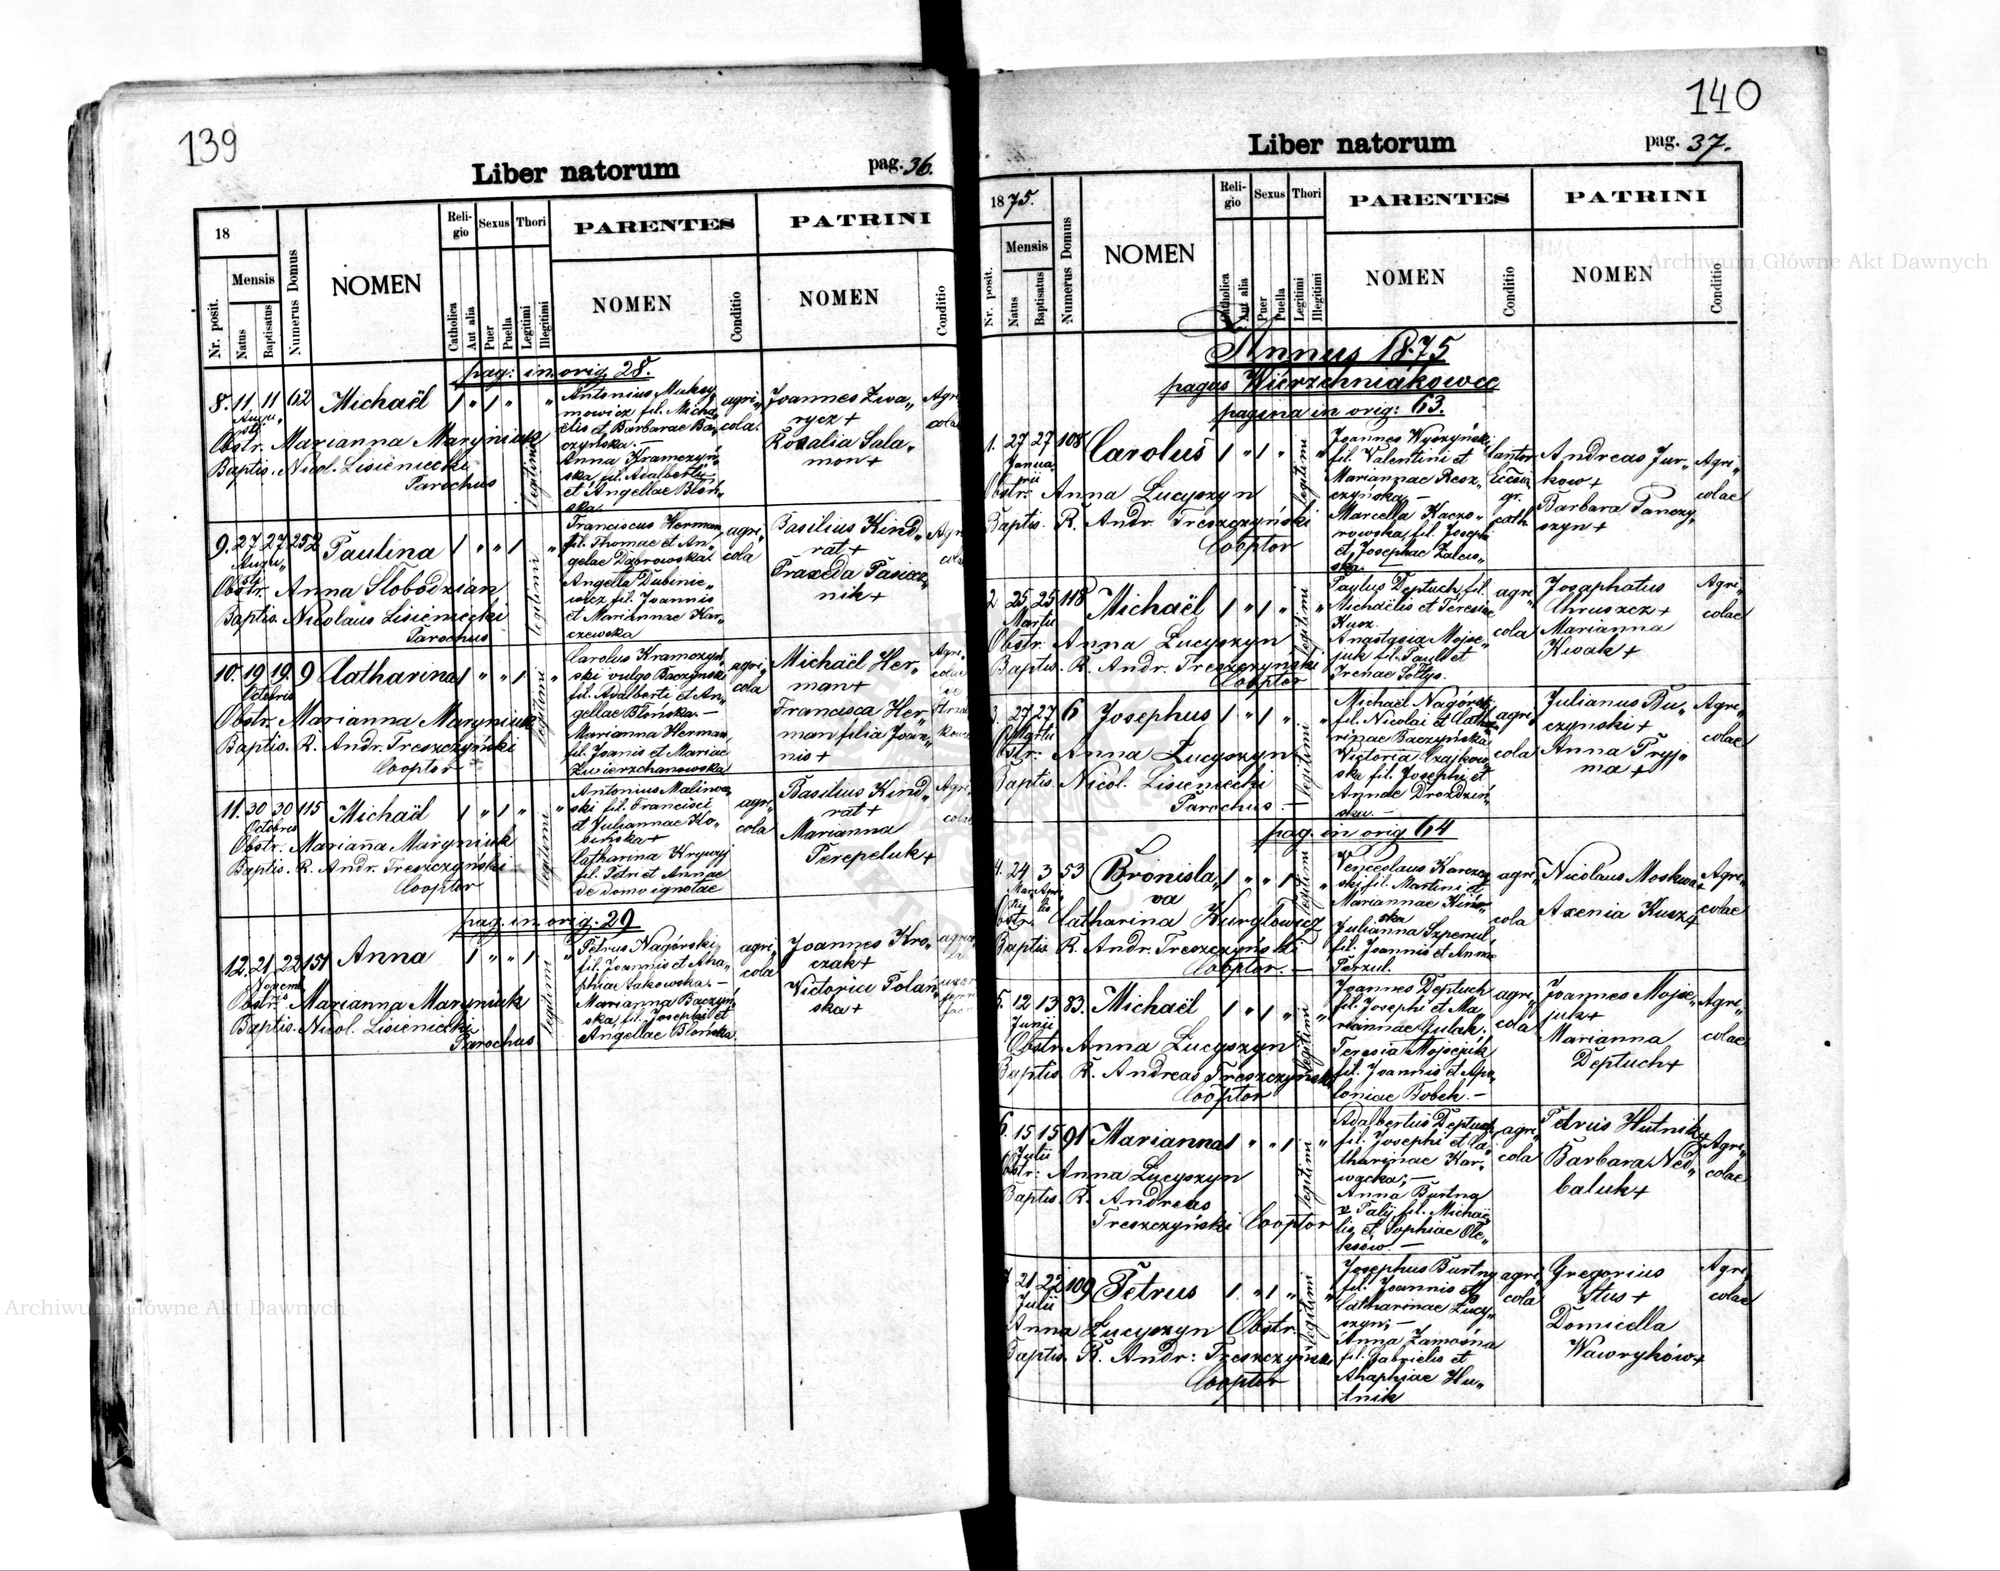 139
Liber natorum
pag. 36.
18
Mensis
Nr. posit.
Natus
Baptisatus
Numerus Domus
NOMEN
Religio
Catholica
Aut alia
Sexus
Puer
Puella
Thori
Legitimi
Illegitimi
PARENTES
NOMEN
Conditio
PATRINI
NOMEN
Conditio
pag: in orig. 28.
8. 11 11 62 Michaël 1 " 1 " "
Augu„
sti
Obstr. Marianna Maryniak
Baptis. Nicol. Lisieniecki
Parochus
legitimi
Antonius Maksy
mowicz, fil. Micha„
elis et Barbarae Ba„
czyńska.—
Anna Kramczyń„
ska, fil. Adalberti
et Angellae Błoń„
ska.
agri„
cola.
Joannes Zwa„
rycz +
Rosalia Sala„
mon +
Agri
colae
9. 27 27 252 Paulina 1 " " 1 "
Augu„
sti
Obstr. Anna Słobodzian
Baptis. Nicolaus Lisieniecki
Parochus
legitimi
Franciscus Herman,
fil. Thomae et An„
gelae Dąbrowska.
Angella Dubinie„
wicz fil. Joannis
et Mariannae Kar„
czewska
agri„
cola
Basilius Kind„
rat +
Praxeda Pasiecz„
nik +
Agri
colae
10. 19 19. 9 Catharina 1 " " 1 "
Octobris
Obstr. Marianna Maryniuk
Baptis. R. Andr. Treszczyński
Cooptor
legitimi
Carolus Kramczyń„
ski vulgo Baczyński
fil. Adalberti et An„
gellae Błońska.—
Marianna Herman,
fil. Joannis et Mariae
Zwierzchanowska
agri„
cola
Michaël Her„
man +
Francisca Her„
man filia Joan„
nis +
Agri„
colae
11. 30 30 115 Michaël 1 " 1 " "
Octobris
Obstr. Marianna Maryniuk
Baptis. R. Andr. Treszczyński
Cooptor
legitimi
Antonius Malinow„
ski fil. Francisci
et Juliannae Ko„
sińska +
Catharina Krywyj
fil. Petri et Annae
de domo ignotae
agri„
cola
Basilius Kind„
rat +
Marianna
Perepeluk +
Agri„
colae
pag. in orig. 29
12. 21 22 151 Anna 1 " " 1 "
Novemb„
Obstr. Marianna Maryniak
Baptis. Nicol. Lisieniecki
Parochus
legitimi
Petrus Nagórski,
fil. Joannis et Aha„
phiae Łakowska.—
Marianna Baczyń„
ska, fil. Josephi et
Angellae Błońska.
agri„
cola
Joannes Kro„
czak +
Victoria Polań„
ska +
140
Liber natorum
pag. 37.
1875.
Mensis
Nr. posit.
Natus
Baptisatus
Numerus Domus
NOMEN
Religio
Catholica
Aut alia
Sexus
Puer
Puella
Thori
Legitimi
Illegitimi
PARENTES
NOMEN
Conditio
PATRINI
NOMEN
Conditio
Annus 1875
pagus Wierzchniakowce
pagina in orig: 63.
1. 27 27 108 Carolus 1 " 1 "
Janua„
rii
Obstr. Anna Łucyszyn
Baptis. R. Andr Treszczyński
Cooptor
legitimi
Joannes Wyszyński,
fil. Valentini et
Mariannae Resz„
czyńska.—
Marcella Kaczo„
rowska, fil. Josephi
et Josephae Zales„
ska.
Cantor
Ecclesia
gr.
cath.
Andreas Jur„
kow +
Barbara Panczy„
szyn +
Agri„
colae
2 25 25 118 Michaël 1 " 1 " "
Martii
Obstr. Anna Łucyszyn
Baptis R. Andr. Treszczyński
Cooptor
legitimi
Paulus Deptuch, fil.
Michaëlis et Teresiae
Kusz.
Anastasia Mojse„
juk fil. Pauli et
Irenae Sołtys.
agri„
cola
Josaphatus
Chruszcz +
Marianna
Kwak +
Agri„
colae
3. 27 27 6 Josephus 1 " 1 " "
Martii
Obstr: Anna Łucyszyn
Baptis. Nicol. Lisieniecki
Parochus —
legitimi
Michaël Nagórski,
fil. Nicolai et Catha„
rinae Baczyńska
Victoria Czajkow„
ska fil. Josephi et
Annae Drozdziń„
ska.—
agri„
cola
Julianus Bu„
czynski +
Anna Pryj„
ma +
Agri„
colae
pag. in orig 64
4. 24 3 53 Bronisla„ 1 " " 1 "
va
Obstr. Catharina Kurgłowicz
Baptis R. Andr. Treszczyński
Cooptor.—
legitimi
Venceslaus Karczew„
ski fil. Martini et
Mariannae Kińs„
ska
Julianna Szpenul,
fil. Joannis et Annae
Perzul.
agri„
cola
Nicolaus Moskwa +
Axenia Kuszy
Agri„
colae
5. 12 13 83. Michaël 1 " 1 " "
Junii
Obstr. Anna Łucyszyn
Baptis R. Andreas Treszczyński
Cooptor
legitimi
Joannes Deptuch
fil. Josephi et Ma„
riannae Gulak.
Teresia Mojsejuk
fil. Joannis et Apo„
loniae Bobek.—
agri„
cola
Joannes Mojse„
juk +
Marianna
Deptuch +
Agri„
colae
6. 15 15 91 Marianna 1 " " 1 "
Julii
Obstr: Anna Łucyszyn
Baptis. R. Andreas
Treszczyński Cooptor
legitimi
Adalbertus Deptuch,
fil. Josephi et Ca„
tharinae Kar„
wacka.—
Anna Burtny
v. Palij fil. Michaë„
lis et Sophiae Ole„
ksow.—
agri„
cola
Petrus Hutnik +
Barbara Ned„
baluk +
Agri„
colae
7 21 22 109 Petrus 1 " 1 " "
Julii
Anna Łucyszyn Obstr.
Baptis. R. Andr: Treszczyński
Cooptor
legitimi
Josephus Burtny
fil. Joannis et
Catharinae Łucy„
szyn.—
Anna Zamośna
fil. Gabrielis et
Ahaphiae Hu„
tnik
agri„
cola
Gregorius
Stus +
Domicella
Wawryków +
Agri„
colae
Archiwum Główne Akt Dawnych
Archiwum Główne Akt Dawnych